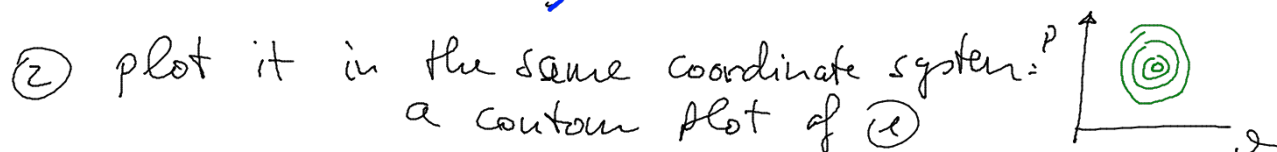 ② plot it in the same coordinate system: P
a contour plot of ①